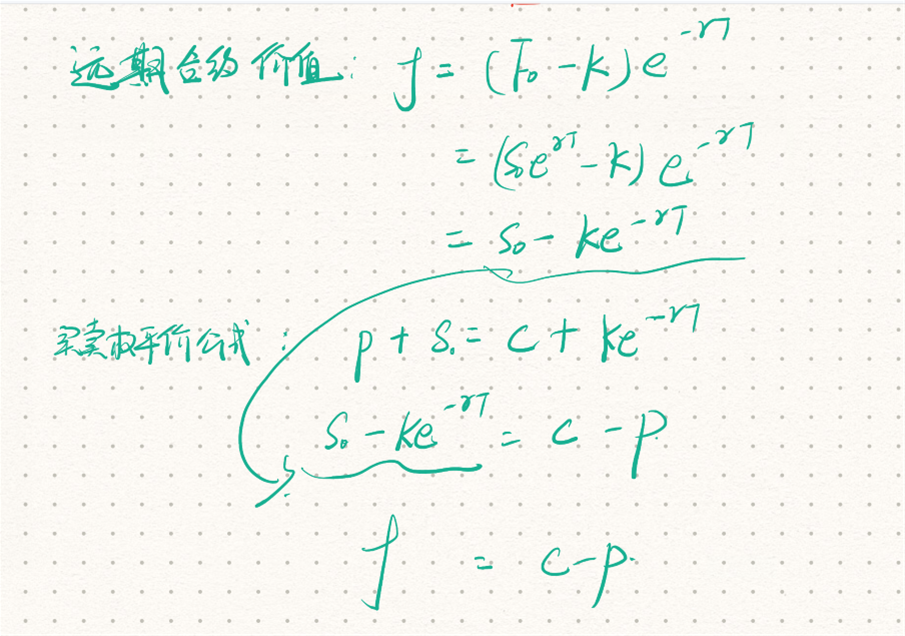 远期合约价值: f = (F₀ - K) e^{-rT}
= (S₀e^{rT} - K) e^{-rT}
= S₀ - Ke^{-rT}
买卖权平价公式: p + S₀ = c + Ke^{-rT}
S₀ - Ke^{-rT} = c - p
f = c - p.